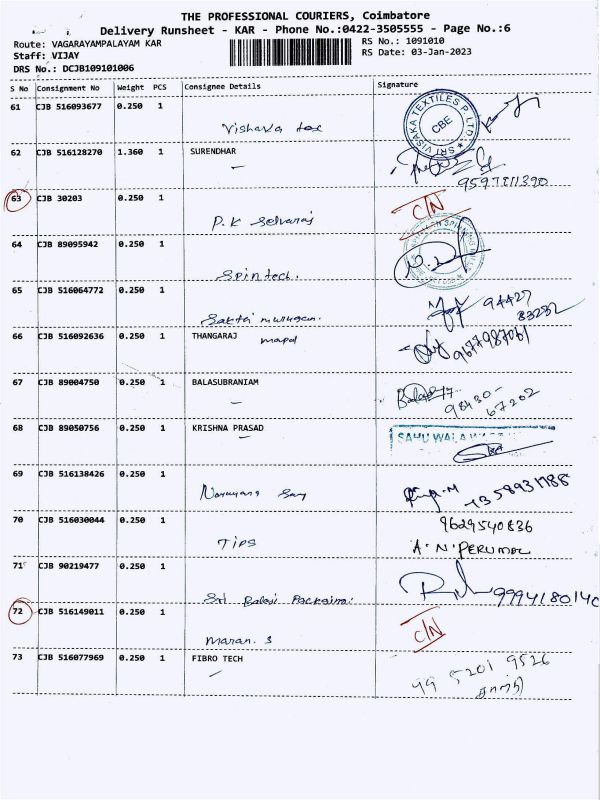 THE PROFESSIONAL COURIERS, Coimbatore
Delivery Runsheet - KAR - Phone No.:0422-3505555 - Page No.:6
Route: VAGARAYAMPALAYAM KAR RS No.: 1091010
Staff: VIJAY RS Date: 03-Jan-2023
DRS No.: DCJB109101006
S No Consignment No Weight PCS Consignee Details Signature
61 CJB 516093677 0.250 1
Vishaka tex
SRI VISAKA TEXTILES P LTD. CBE
62 CJB 516128270 1.360 1 SURENDHAR
9597811390
63 CJB 30203 0.250 1
P.K Selvaraj C/N
64 CJB 89095942 0.250 1
Spintech.
65 CJB 516064772 0.250 1
Sakthi murugan. 94427
83232
66 CJB 516092636 0.250 1 THANGARAJ
9677987061
67 CJB 89004750 0.250 1 BALASUBRANIAM
98430-
67202
68 CJB 89050756 0.250 1 KRISHNA PRASAD
SAHUWALA
69 CJB 516138426 0.250 1
Narayana
70 CJB 516030044 0.250 1 9629540836
TIPS A.N.PERUMAL
71 CJB 90219477 0.250 1
Sri Balaji 9994180140
72 CJB 516149011 0.250 1
maran. S C/N
73 CJB 516077969 0.250 1 FIBRO TECH
99 5201 9526